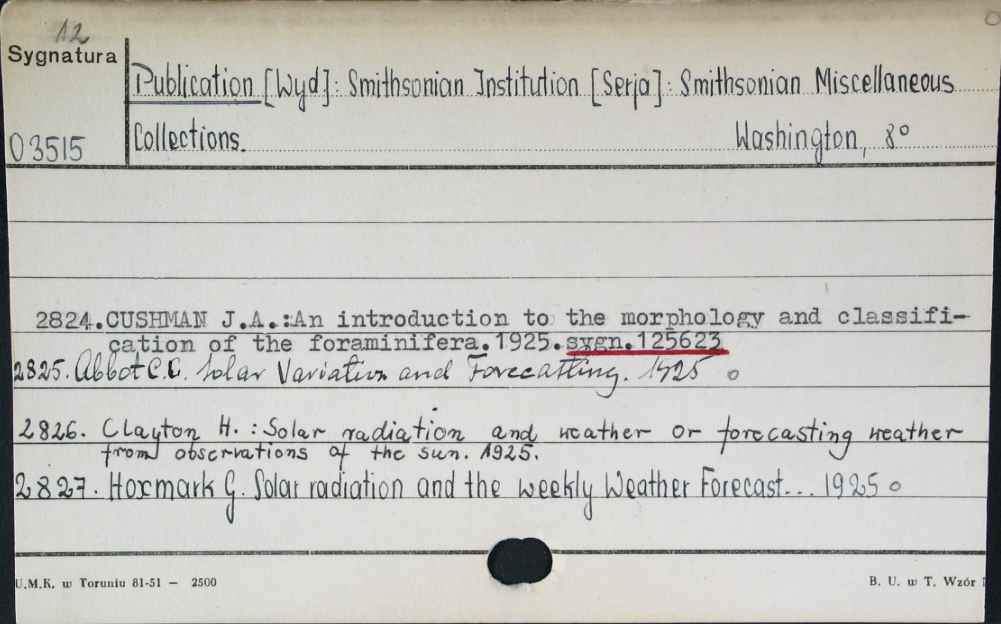 12
Sygnatura
Publication [Wyd]: Smithsonian Institution [Serja]: Smithsonian Miscellaneous
03515
Collections. Washington, 8°
2824.CUSHMAN J.A.:An introduction to the morphology and classifi-
cation of the foraminifera.1925.sygn.125623
2825. Abbot C.C. Solar Variation and Forecasting. 1925 o
2826. Clayton H. : Solar radiation and weather or forecasting weather
from observations of the sun. 1925.
2827. Hoxmark G. Solar radiation and the weekly Weather Forecast... 1925 o
U.M.K. w Toruniu 81-51 — 2500
B. U. w T. Wzór